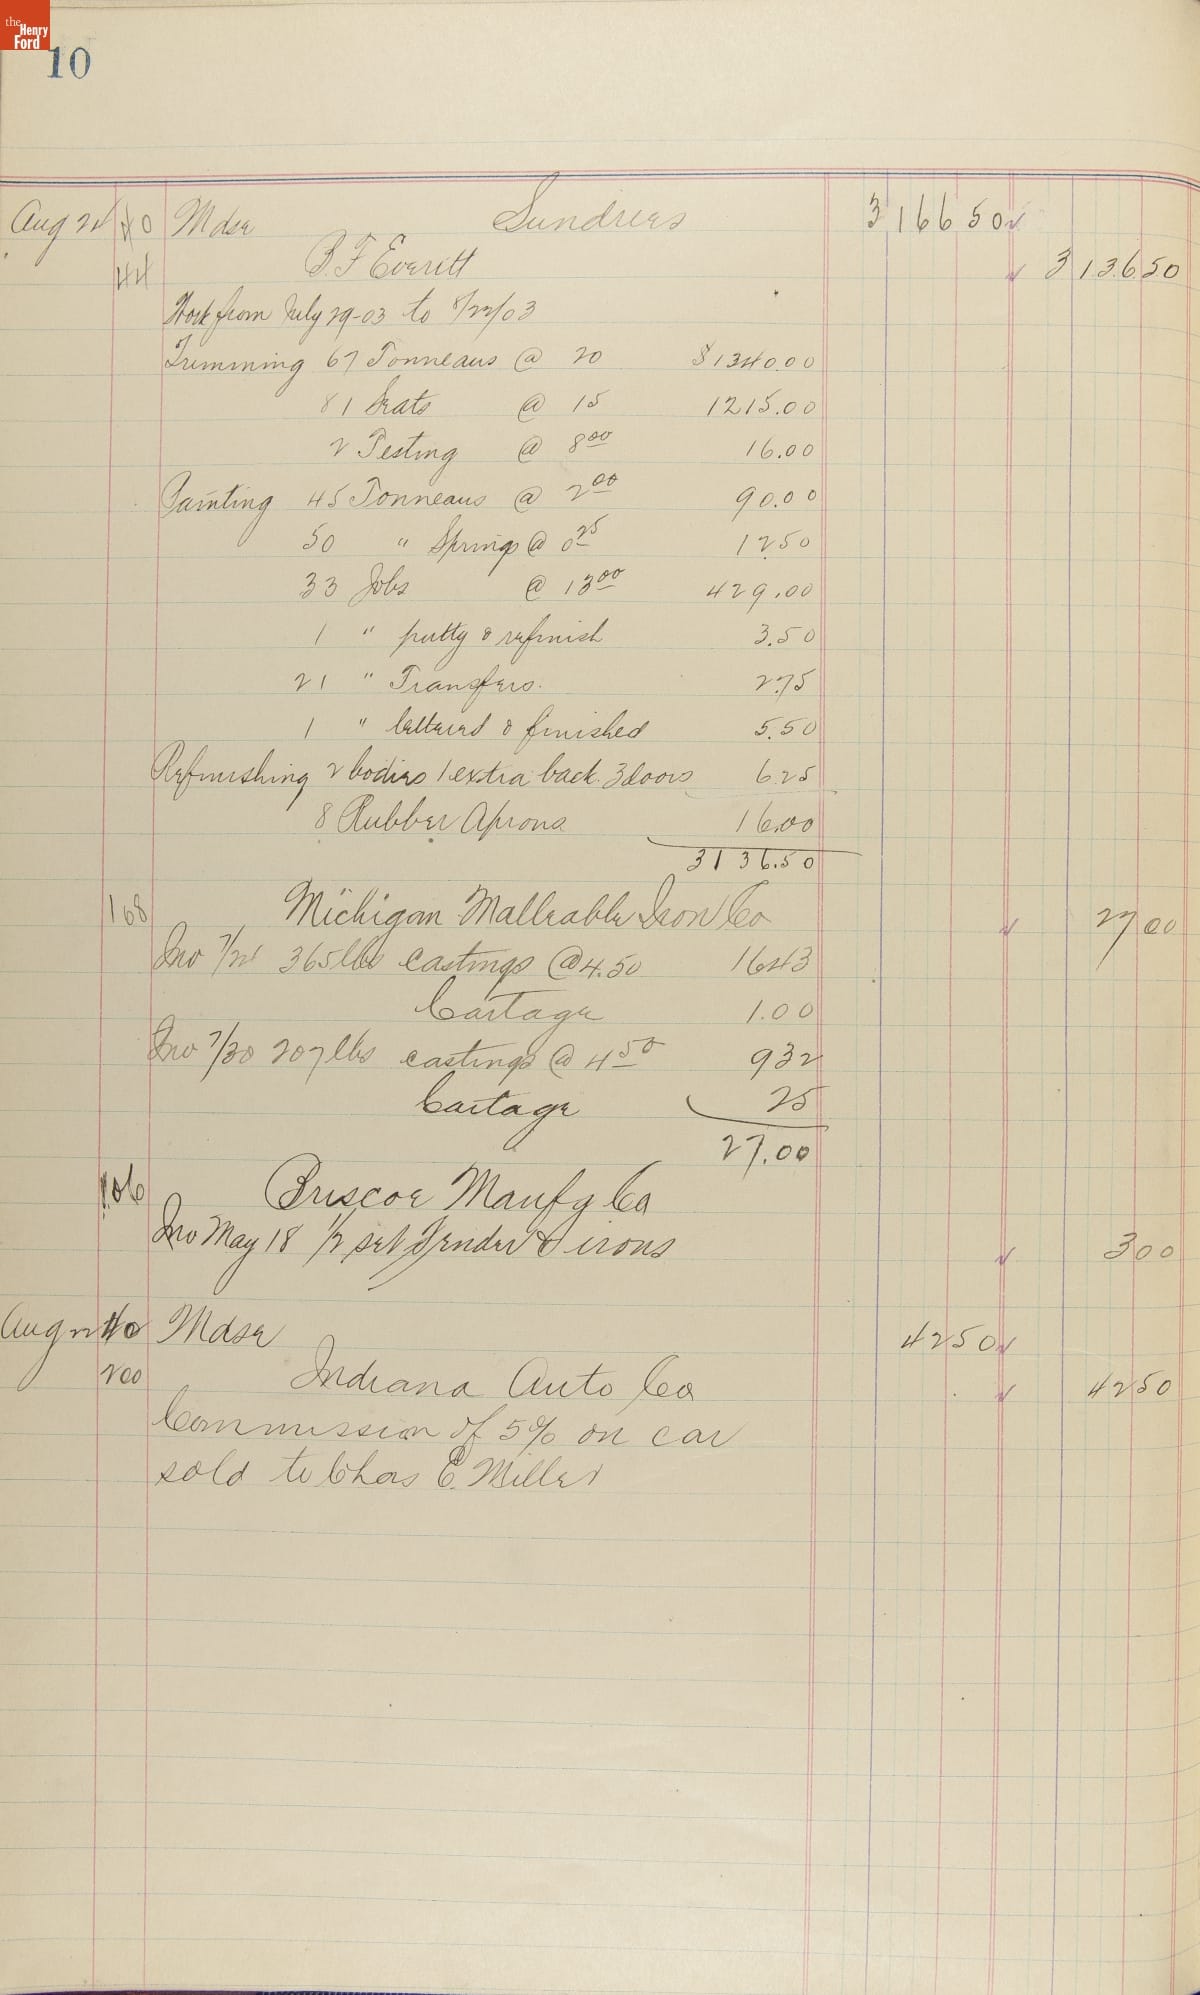 the Henry Ford
10
Aug 24 40 Mdse Sundries 3166 50
44 B. F Everitt 3136 50
Work from July 29-03 to 8/22/03
Trimming 67 Tonneaus @ 20 $1340.00
81 Seats @ 15 1215.00
2 Testing @ 8 00 16.00
Painting 45 Tonneaus @ 2 00 90.00
50 " Springs @ 0 25 12.50
33 Jobs @ 13 00 429.00
1 " putty & refinish 3.50
21 " Transfers. 2.75
1 " lettered & finished 5.50
Refinishing 2 bodies 1 extra back. 3 doors 6.25
8 Rubber Aprons 16.00
3136.50
168 Michigan Malleable Iron Co 27 00
Inv 7/21 365 lbs castings @ 4.50 16 43
Cartage 1.00
Inv 7/30 207 lbs castings @ 4 50 9 32
Cartage 25
27.00
106 Briscoe Manfg Co
Inv May 18 1/2 set Fender & irons 3 00
Aug 40 Mdse 42 50
200 Indiana Auto Co 42 50
Commission of 5% on car
sold to Chas E. Miller